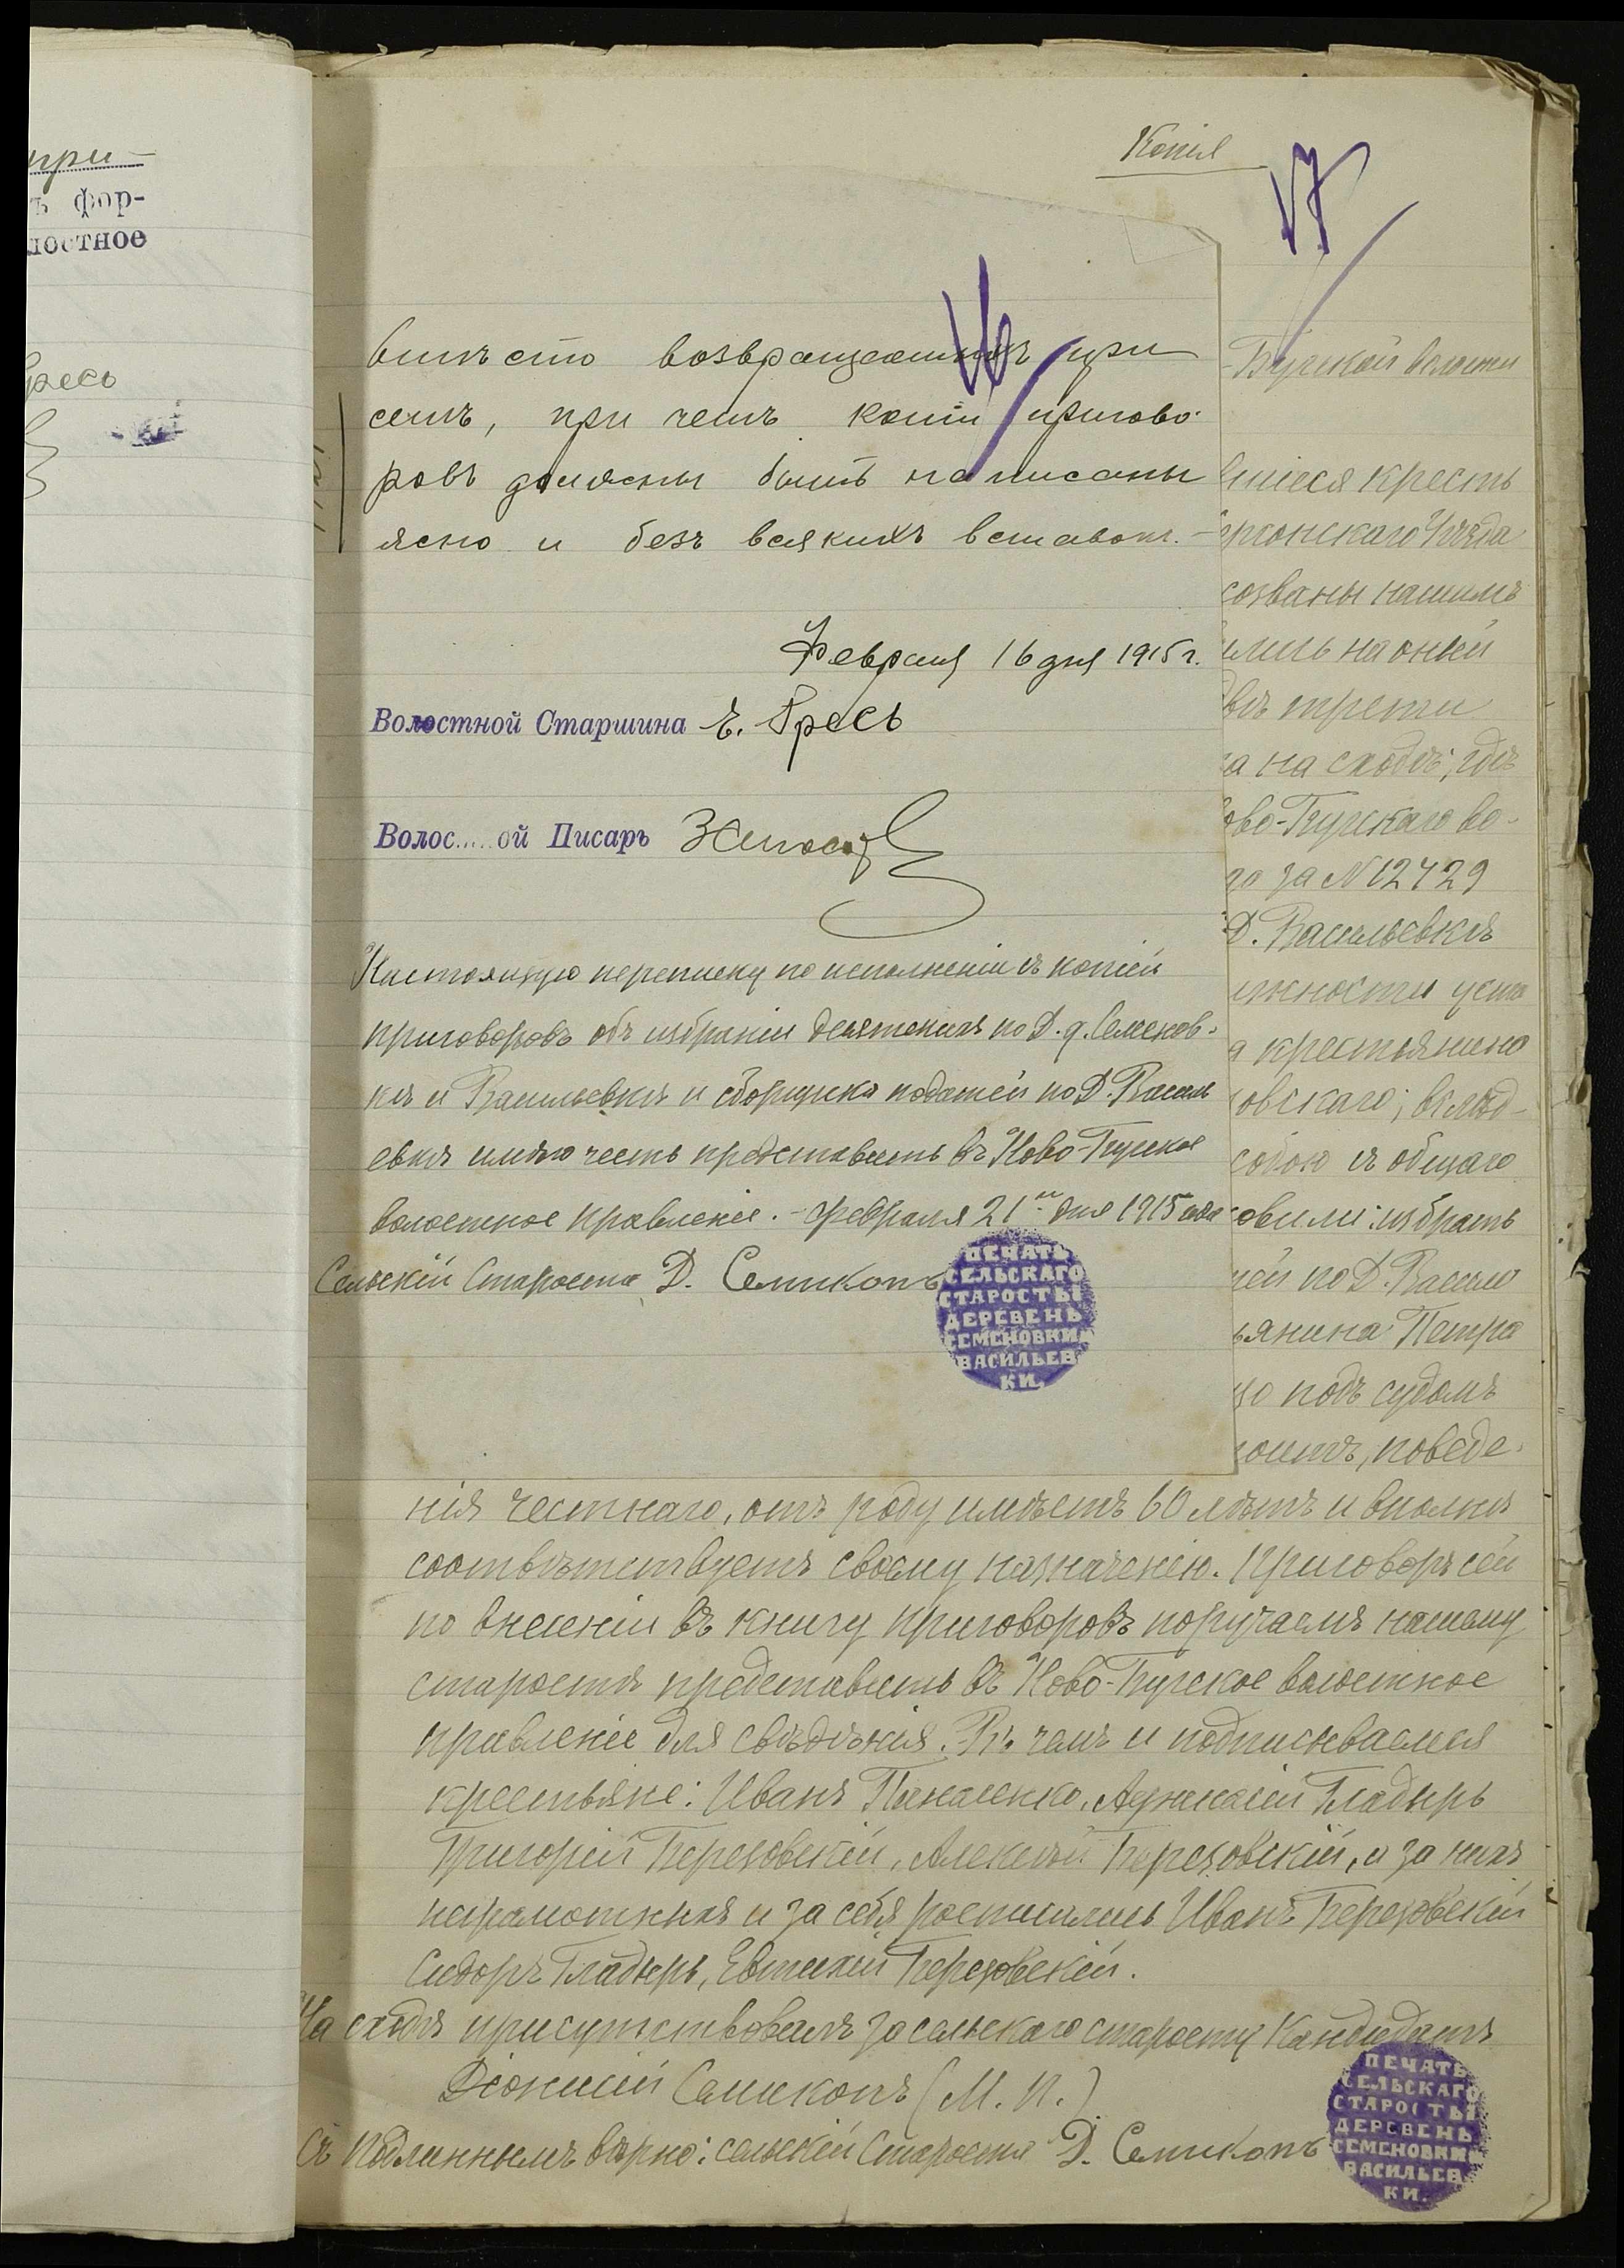 при-
ъ фор-
лостное
ресь
Копія
17
16
вмѣсто возвращаемыхъ при
семъ, при чемъ копіи пригово-
ровъ должны быть написаны
ясно и безъ всякихъ вставок. -
Февраля 16 дня 1915 г.
Волостной Старшина Е. Гресь
Волос.....ой Писарь
Настоящую переписку по исполненіи съ копіей
приговоровъ объ избраніи десятскихъ по Д. д. Семенов-
кѣ и Васильевкѣ и сборщика податей по Д. Василь
евкѣ имѣю честь представить въ Ново-Бугское
волостное правленіе. - Февраля 21 го дня 1915 года
Сельскій Староста Д. Семикопъ
ПЕЧАТЬ
СЕЛЬСКАГО
СТАРОСТЫ
ДЕРЕВЕНЬ
СЕМЕНОВКИ
ВАСИЛЬЕВ
КИ.
-Бугской волости
шіеся кресть
рсонскаго Уѣзда
созваны нашимъ
ились на оный
двѣ трети
а на сходѣ, гдѣ
ово-Бугскаго во-
го за N 12429
Д. Васильевкѣ
лжности уста
а крестьянина
овскаго; вслѣд-
собою съ общаго
овили: избрать
тей по Д. Василь
ьянина Петра
що подъ судомъ
тоитъ, поведе-
нія честнаго, отъ роду имѣетъ 60 лѣтъ и вполнѣ
соотвѣтствуетъ своему назначенію. Приговоръ сей
по внесеніи въ книгу приговоровъ поручаемъ нашему
старостѣ представить въ Ново-Бугское волостное
правленіе для свѣдѣнія. Въ чемъ и подписываемся
крестьяне: Иванъ Панасенко, Афанасій Гладырь
Григорій Березовскій, Алексѣй Березовскій, а за нихъ
неграмотныхъ и за себя росписались Иванъ Березовскій
Сидоръ Гладырь, Евтихій Березовскій.
На сходѣ присутствовалъ за сельскаго старосту Кандидатъ
Діонисій Семикопъ (М. П.)
Съ подлиннымъ вѣрно: сельскій Староста Д. Семикопъ
ПЕЧАТЬ
СЕЛЬСКАГО
СТАРОСТЫ
ДЕРЕВЕНЬ
СЕМЕНОВКИ
ВАСИЛЬЕВ
КИ.